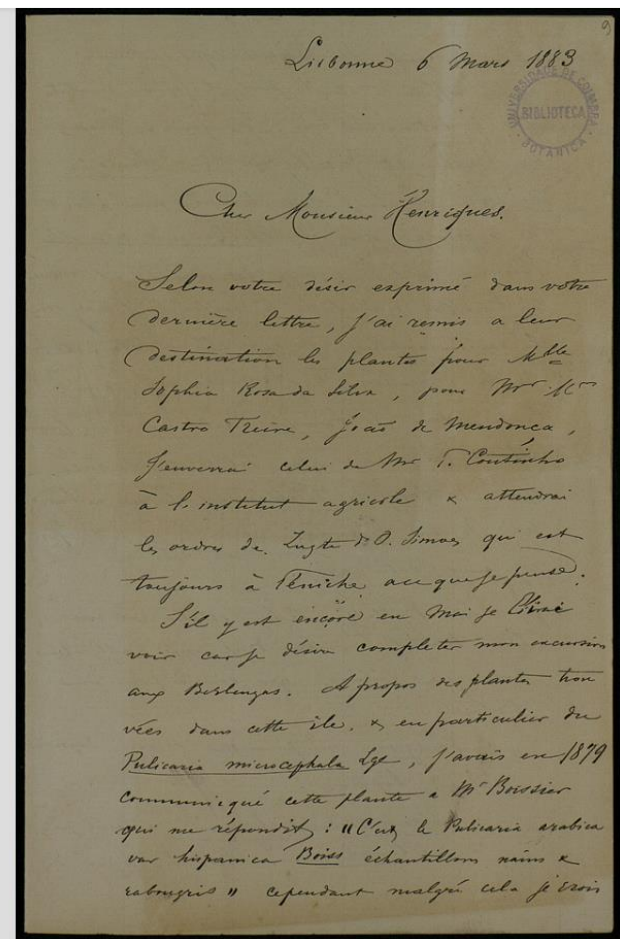 9
Lisbonne 6 Mars 1883
UNIVERSIDADE DE COIMBRA
BIBLIOTECA
BOTANICA
Cher Monsieur Henriques.
Selon votre désir exprimé dans votre
dernière lettre, j'ai remis a leur
destination les plantes pour Mlle
Sophia Rosa da Silva, pour Mr
Castro Freire, João de Mendonca,
J'enverrai celui de Mr P. Coutinho
à l'institut agricole & attendrai
les ordres de D. Simoes qui est
toujours à Péniche a ce que je pense.
S'il y est encore en Mai je l'irai
voir car je désire completer mon excursion
aux Berlengas. A propos des plantes trou
vées dans cette île, & en particulier du
Pulicaria microcephala Lge, j'avais en 1879
communiqué cette plante a Mr Boissier
qui me répondit : "C'est le Pulicaria arabica
var hispanica Boiss échantillons nains &
rabougris" cependant malgré cela je crois